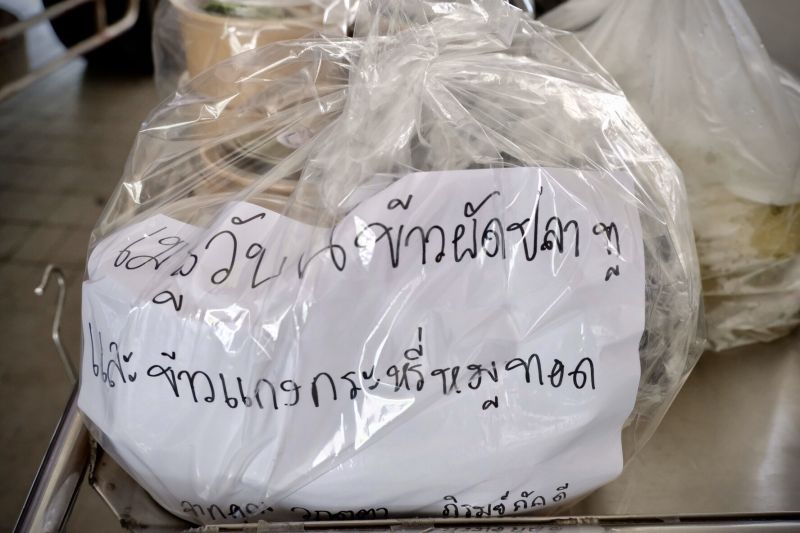 เมนูวันนี้ ข้าวผัดปลาทู
และข้าวแกงกะหรี่หมูทอด
จากคุณ ภิรมย์ภักดี